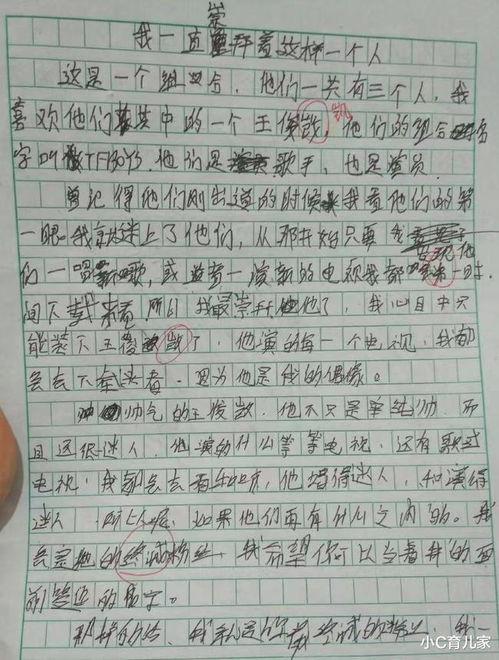 崇
我一直崇拜着这样一个人
这是一个组合，他们一共有三个人，我
喜欢他们其中的一个王俊凯，他们的组合名
凯
字叫TFBOYS.他们是歌手，也是演员.
记得他们刚出道的时候我看他们的第
一眼我就迷上了他们，从那开始只要
们一唱新歌，或者一演新的电视我都第一时
间下载来看 所以我最崇拜他了，我心目中只
能装下王俊 了，他演的每一个电视，我都
会去下载来看.因为他是我的偶像。
帅气的王俊 .他不只是单纯帅.而
且还很迷人.他演的什么等等电视.还有歌
电视.我都会去看 ，他唱得迷人，和演得
迷人 所以呢.如果他们再有什么之内的.我
会是他的 粉丝，我希望你可以当着我的面
前签你的名字。
那样的话，我就是你 的粉丝，我一
小C育儿家